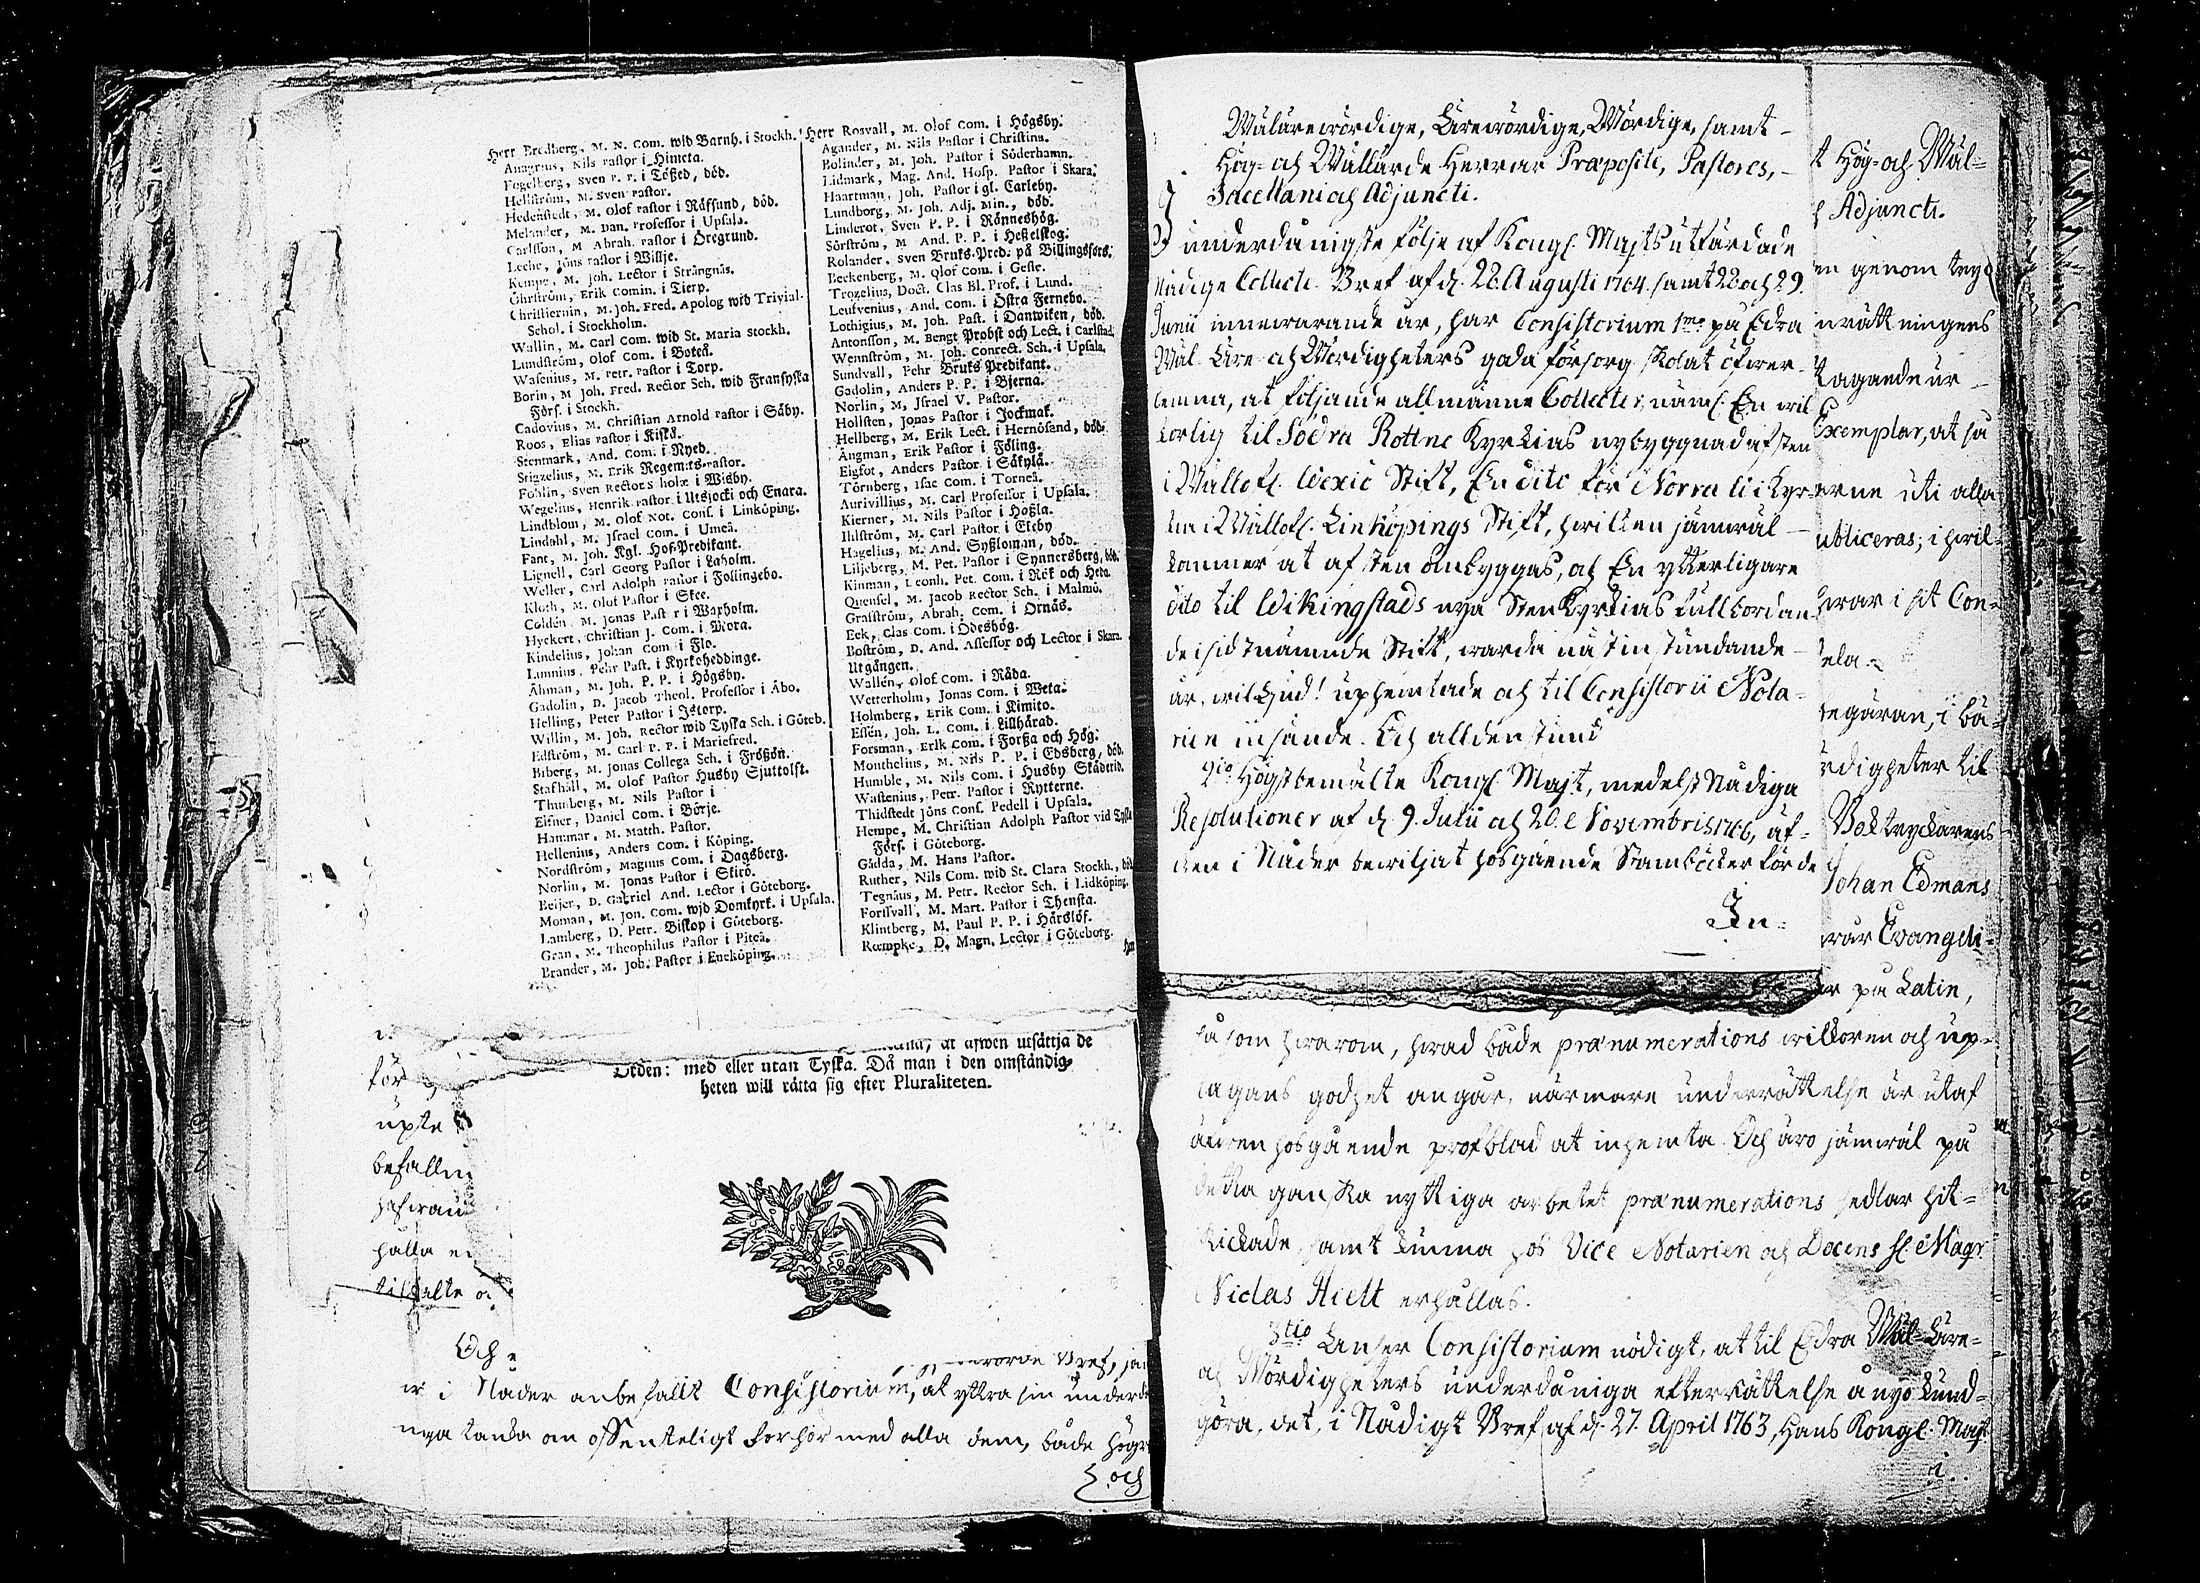 Herr Bredberg, M. N. Com. wid Barnh. i Stockh.
Anagrius, Nils Pastor i Himeta.
Fogelberg, Sven P. P. i Tößed, död.
Hellström, M. Sven Pastor.
Hedenstedt, M. Olof Pastor i Räfsund, död.
Melander, M. Dan. Professor i Upsala.
Carlsson, M Abrah. Pastor i Öregrund.
Leche, Jöns Pastor i Willje.
Kempe, M. Joh. Lector i Strängnäs.
Öhrström, Erik Comin. i Tierp.
Christiernin, M. Joh. Fred. Apolog wid Trivial-
Schol. i Stockholm.
Wallin, M. Carl Com. wid St. Maria Stockh.
Lundström, Olof Com. i Boteå.
Wasenius, M. Petr. Pastor i Torp.
Borin, M Joh. Fred. Rector Sch. wid Fransyska
Förs. i Stockh.
Cadovius, M. Christian Arnold Pastor i Säby.
Roos, Elias Pastor i Kiskå.
Stenmark, And. Com. i Nyed.
Stigzelius, M. Erik Regem:ts-Pastor.
Fohlin, Sven Rector Scholæ i Wisby.
Wegelius, Henrik Pastor i Utsjocki och Enara.
Lindblom, M. Olof Not. Cons. i Linköping.
Lindahl, M. Jsrael Com. i Umeå.
Fant, M. Joh. Kgl. Hof-Predikant.
Lignell, Carl Georg Pastor i Laholm.
Weller, Carl Adolph Pastor i Follingebo.
Kloth, M. Olof Pastor i Skee.
Coldén M. Jonas Pastor i Waxholm.
Hyckert, Christian J. Com. i Mora.
Kindelius, Johan Com i Flo.
Lunnius, Pehr Past. i Kyrkoheddinge.
Åhman, M. Joh. P. P. i Högsby.
Gadolin, D. Jacob Theol. Professor i Åbo.
Helling, Peter Pastor i Istorp.
Willin, M. Joh. Rector wid Tyska Sch. i Göteb.
Edström, M. Carl P. P. i Mariefred.
Biberg, M. Jonas Collega Sch. i Frößön.
Stafhäll, M. Olof Pastor Husby Sjuttolft.
Thunberg, M. Nils Pastor i
Elfner, Daniel Com. i Börje.
Hammar, M. Matth. Pastor.
Hellenius, Anders Com. i Köping.
Nordström, Magnus Com. i Dagsberg.
Norlin, M. Jonas Pastor i Skirö.
Beijer, D. Gabriel And. Lector i Göteborg.
Moman, M. Jon. Com. wid Domkyrk. i Upsala.
Lamberg, D. Petr. Biskop i Göteborg.
Gran, M. Theophilus Pastor i Piteå.
Brander, M. Joh. Pastor i Eneköping.
Herr Rosvall, M. Olof Com. i Högsby.
Agander, M. Nils Pastor i Christina.
Bolinder, M. Joh. Pastor i Söderhamn.
Lidmark, Mag. And. Hosp. Pastor i Skara.
Haartman, Joh. Pastor i gl. Carleby.
Lundborg, M. Joh. Adj. Min., död.
Linderot, Sven P. P. i Rönneshög.
Sörström, M And. P. P. i Heßelskog.
Rolander, Sven Bruks-Pred. på Billingsfors.
Beckenberg, M. Olof Com. i Gefle.
Trozelius, Doct. Clas Bl. Prof. i Lund.
Leufvenius, And. Com. i Östra Fernebo.
Lothigius, M. Joh. Past. i Danwiken, död.
Antonsson, M. Bengt Probst och Lect. i Carlstad.
Wennström, M. Joh. Conrect. Sch. i Upsala.
Sundvall, Pehr Bruks Predikant.
Gadolin, Anders P. P. i Bjerna.
Norlin, M, Jsrael V. Pastor.
Hollsten, Jonas Pastor i Jockmak.
Hellberg, M. Erik Lect. i Hernösand, död.
Ångman, Erik Pastor i Föling.
Eigfot, Anders Pastor i Säkylä.
Törnberg, Isac Com. i Torneå.
Aurivillius, M. Carl Professor i Upsala.
Kierner, M. Nils Pastor i Hoßla.
Ihlström, M. Carl Pastor i Ekeby
Hagelius, M. And. Syßloman, död.
Liljeberg, M. Pet. Pastor i Synnersberg, död.
Kinman, Leonh. Pet. Com. i Rök och Heda.
Quensel, M. Jacob Rector Sch. i Malmö.
Grafström, Abrah. Com. i Ornäs.
Eek, Clas Com. i Ödeshög.
Boström, D. And. Assessor och Lector i Skara.
Utgången.
Wallén, Olof Com. i Råda.
Wetterholm, Jonas Com. i Weta.
Holmberg, Erik Com. i Kimito.
Essén, Joh. L. Com. i Lillhärad.
Forsman, Erik Com. i Forßa och Hög.
Monthelius, M. Nils P. P. i Edsberg, död.
Humble, M. Nils Com. i Husby Skäderid.
Wastenius, Petr. Pastor i Rytterne.
Thidstedt Jöns Cons. Pedell i Upsala.
Hempe, M. Christian Adolph Pastor vid Tyska
Förs. i Göteborg.
Gädda, M. Hans Pastor.
Ruther, Nils Com. wid St. Clara Stockh., död
Tegnäus, M. Petr. Rector Sch. i Lidköping.
Forssvall, M. Mart. Pastor i Thensta.
Klintberg, M. Paul P. P. i Hårslöf.
Rœmpke, D. Magn. Lector i Göteborg.
Herr
at äfwen utsättja de
Orden: med eller utan Tyska. Då man i den omständig-
heten will rätta sig efter Pluraliteten.
för
upte
befallni
hafwan
hålla en
tilhalte oc
Och
Bref, ja
er i Nåder anbefallt Consistorium, at yttra sin underdå
niga tanka om offenteligt förhör med alla dem, både högr
och
Wälärewördige, Lärewördige, Wördige, samt
Hög- och Wällärde Herrar Præpositi, Pastores,
Sacellani och Adjuncti.
I underdånigste följe af Kongl. Maj:ts utfärdade
Nådige Collecte-Bref af d. 28. Augusti 1764. samt 28 och 29.
Junii innewarande år, har Consistorium 1mo på Edra
Wäl- Läre- och Wördigheters goda försorg skolat öfwer-
lemna, at följande allmänne Collecter, näml. En wil
korlig til Södra Rottne Kyrkias nybyggnad af sten
i Wällofl. Wexiö Stift, En dito för Norra Wi Kyr-
ka i Wällofl. Linköpings Stift, hwilken jämwäl
kommer at af sten ombyggas, och En ytterligare
dito til Wikingstads nya Sten Kyrkias fullbordan
de i sidstnämnde Stift, warda nästinstundande
år, wil Gud! uphemtade och til Consistorii Nota-
rien insände. Och alldenstund
2do Högstbemälte Kongl. Maj:t, medelst Nådiga
Resolutioner af d. 9. Julii och 20. Novembris 1766, äf-
wen i Nåder bewiljat hosgående Stamböcker för de
In-
t Hög- och Wäl-
h Adjuncti.
en genom tryc
nrättningens
tagande ur
Exemplar, at så
erne uti alla
ubliceras; i hwil-
hwar i sit Con-
dela.
begäran, i bä-
rdigheter til
Boktryckarens
Johan Edmans
wår Evangeli-
er på Latin,
så som hwarom, hwad både prænumerations wilkoren och up-
lagans godhet angår, närmare underrättelse är utaf
äfwen hosgående profblad at inhemta. Och äro jämwäl på
detta ganska nyttiga arbetet prænumerations sedlar hit-
skickade, samt kunna hos Vice Notarien och Docens H. Magr
Niclas Hielt erhållas.
3tio Anser Consistorium nödigt, at til Edra Wäl- Läre-
och Wördigheters underdåniga efterrättelse å nyo kund-
göra, det, i Nådigt Bref af d. 27. April 1763, Hans Kongl. Maj:t